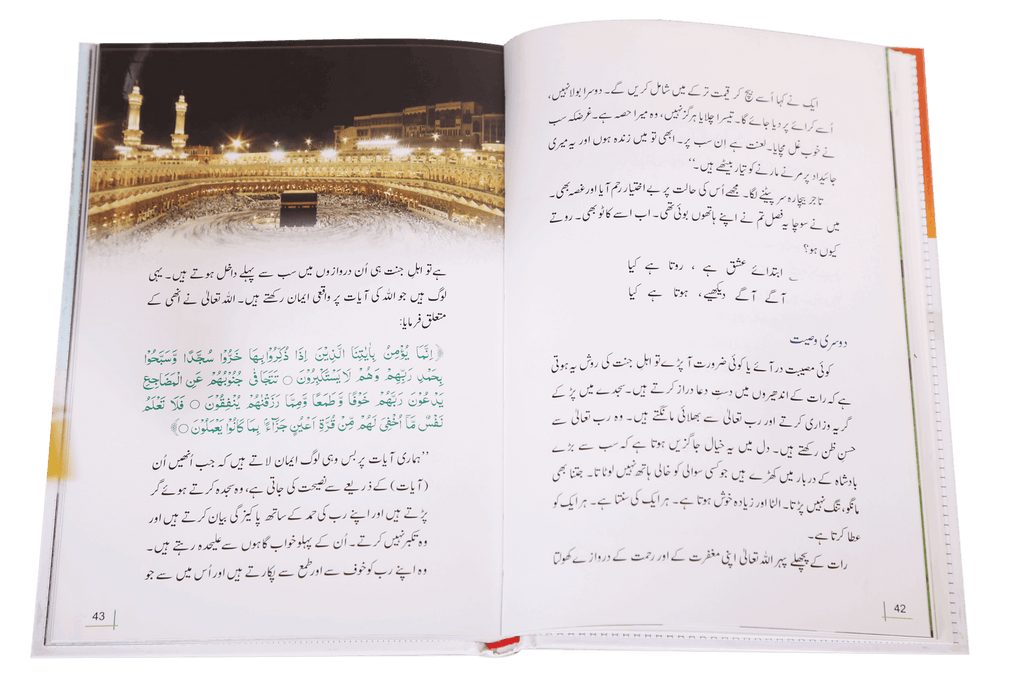 ایک نے کہا اُسے بیچ کر قیمت ترکے میں شامل کریں گے۔ دوسرا بولا نہیں،
اُسے کرائے پر دیا جائے گا۔ تیسرا چلایا ہرگز نہیں، وہ میرا حصہ ہے۔ غرضکہ سب
نے خوب غل مچایا۔ لعنت ہے ان سب پر۔ ابھی تو میں زندہ ہوں اور یہ میری
جائیداد پر مرنے مارنے کو تیار بیٹھے ہیں۔‘‘
تاجر بیچارہ سر پیٹنے لگا۔ مجھے اُس کی حالت پر بے اختیار رحم آیا اور غصہ بھی۔
میں نے سوچا یہ فصل تم نے اپنے ہاتھوں بوئی تھی۔ اب اسے کاٹو بھی۔ روتے
کیوں ہو؟
؂ ابتدائے عشق ہے ، روتا ہے کیا
آگے آگے دیکھیے، ہوتا ہے کیا
دوسری وصیت
کوئی مصیبت در آئے یا کوئی ضرورت آ پڑے تو اہلِ جنت کی روش یہ ہوتی
ہے کہ رات کے اندھیروں میں دستِ دعا دراز کرتے ہیں۔ سجدے میں پڑ کے
گریہ وزاری کرتے اور رب تعالیٰ سے بھلائی مانگتے ہیں۔ وہ رب تعالیٰ سے
حسنِ ظن رکھتے ہیں۔ دل میں یہ خیال جاگزیں ہوتا ہے کہ سب سے بڑے
بادشاہ کے دربار میں کھڑے ہیں جو کسی سوالی کو خالی ہاتھ نہیں لوٹاتا۔ جتنا بھی
مانگو، تنگ نہیں پڑتا۔ الٹا اور زیادہ خوش ہوتا ہے۔ ہر ایک کی سنتا ہے۔ ہر ایک کو
عطا کرتا ہے۔
رات کے پچھلے پہر اللہ تعالیٰ اپنی مغفرت کے اور رحمت کے دروازے کھولتا
42
ہے تو اہلِ جنت ہی اُن دروازوں میں سب سے پہلے داخل ہوتے ہیں۔ یہی
لوگ ہیں جو اللہ کی آیات پر واقعی ایمان رکھتے ہیں۔ اللہ تعالیٰ نے انھی کے
متعلق فرمایا:
﴿اِنَّمَا يُؤْمِنُ بِاٰيٰتِنَا الَّذِيْنَ اِذَا ذُكِّرُوْا بِهَا خَرُّوْا سُجَّدًا وَّسَبَّحُوْا
بِحَمْدِ رَبِّهِمْ وَهُمْ لَا يَسْتَكْبِرُوْنَ ۝ تَتَجَافٰى جُنُوْبُهُمْ عَنِ الْمَضَاجِعِ
يَدْعُوْنَ رَبَّهُمْ خَوْفًا وَّطَمَعًا وَّمِمَّا رَزَقْنٰهُمْ يُنْفِقُوْنَ ۝ فَلَا تَعْلَمُ
نَفْسٌ مَّآ اُخْفِيَ لَهُمْ مِّنْ قُرَّةِ اَعْيُنٍ جَزَآءًۢ بِمَا كَانُوْا يَعْمَلُوْنَ ۝﴾
’’ہماری آیات پر بس وہی لوگ ایمان لاتے ہیں کہ جب انھیں اُن
(آیات) کے ذریعے سے نصیحت کی جاتی ہے، وہ سجدہ کرتے ہوئے گر
پڑتے ہیں اور اپنے رب کی حمد کے ساتھ پاکیزگی بیان کرتے ہیں اور
وہ تکبر نہیں کرتے۔ اُن کے پہلو خواب گاہوں سے علیحدہ رہتے ہیں۔
وہ اپنے رب کو خوف سے اور طمع سے پکارتے ہیں اور اُس میں سے جو
43